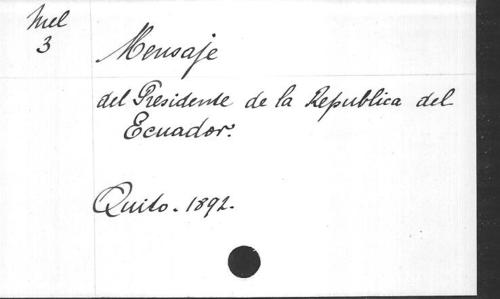 Mel
3
Mensaje
del Presidente de la Republica del
Ecuador.
Quito. 1892.